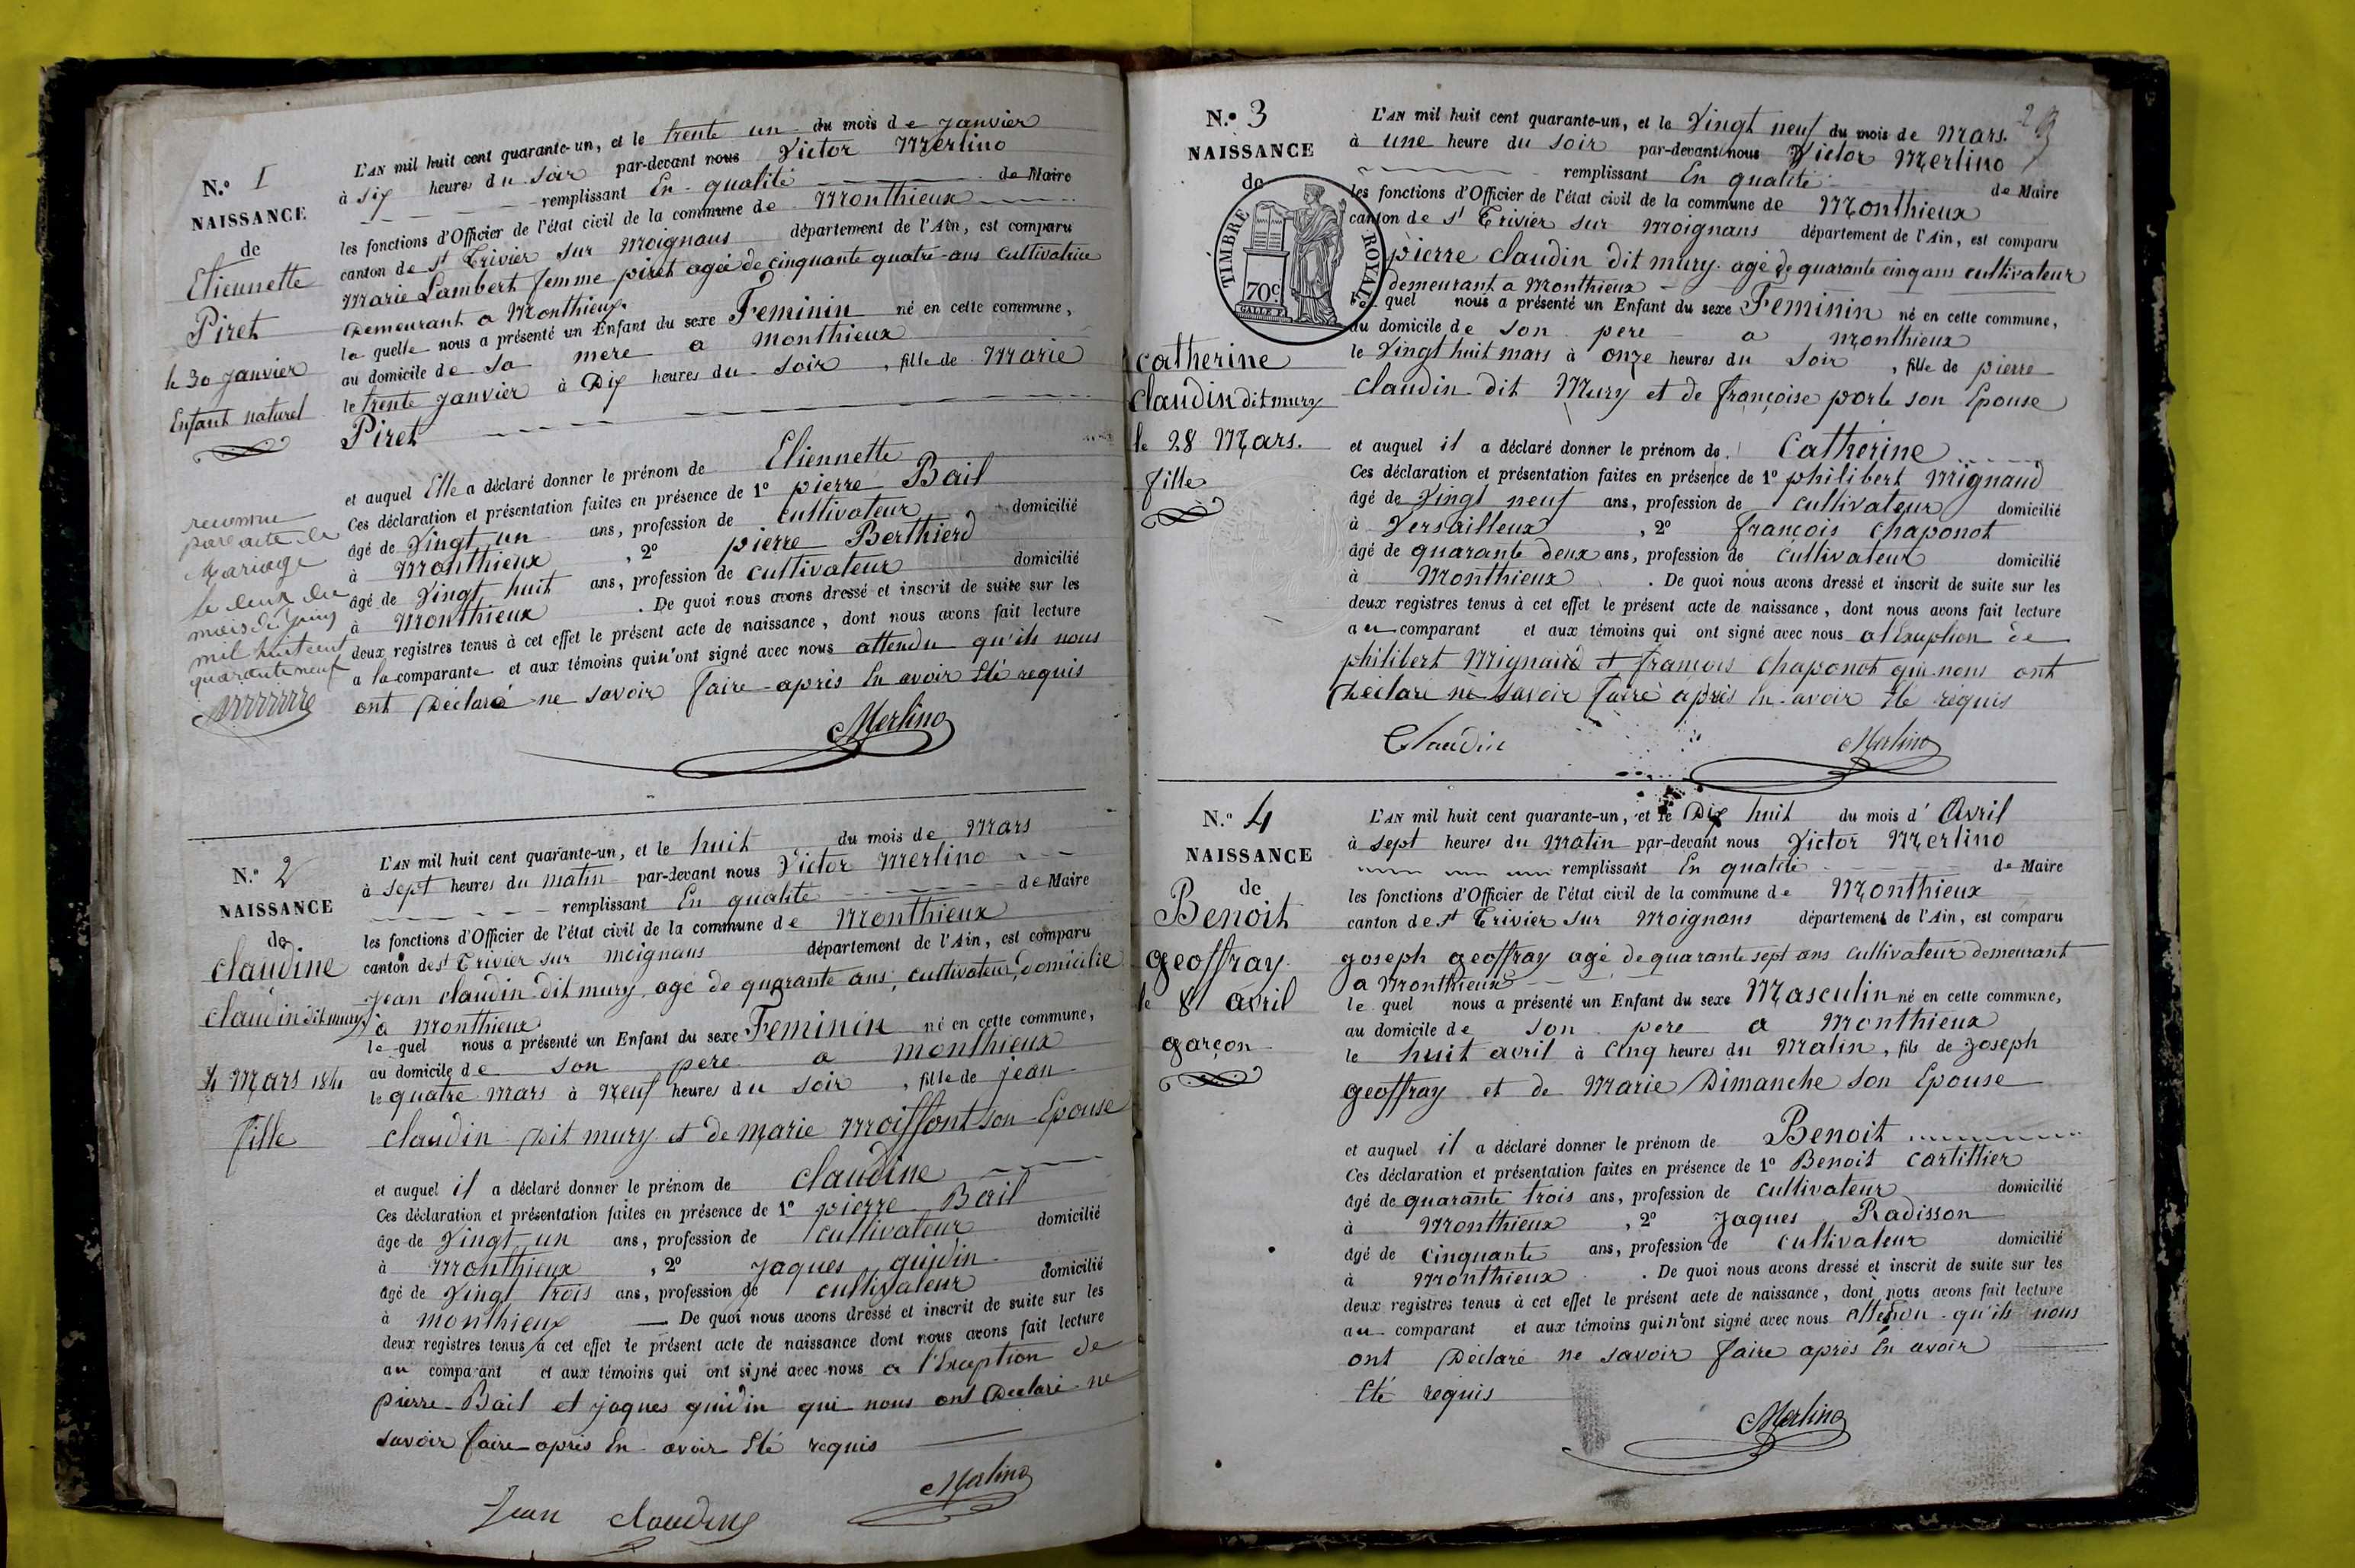 N.º 1
NAISSANCE
de
Etiennette
Piret
le 30 janvier
Enfant naturel
reconnue
par acte de
Mariage
le deux du
mois de juin
mil huit cent
quarante neuf
L'AN mil huit cent quarante-un, et le trente un du mois de janvier
à six heures du soir par-devant nous Victor Merlino
remplissant En qualité de Maire
les fonctions d'Officier de l'état civil de la commune de Monthieux
canton de St Trivier sur Moignans département de l'Ain, est comparu
Marie Lambert femme piret agée de cinquante quatre ans cultivatrice
demeurant a Monthieux
la quelle nous a présenté un Enfant du sexe Feminin né en cette commune,
au domicile de sa mere a monthieux
le trente janvier à Dix heures du soir, fille de Marie
Piret
et auquel Elle a déclaré donner le prénom de Etiennette
Ces déclaration et présentation faites en présence de 1º pierre Bail
âgé de Vingt un ans, profession de cultivateur domicilié
à Monthieux, 2º pierre Berthierd
âgé de Vingt huit ans, profession de cultivateur domicilié
à Monthieux. De quoi nous avons dressé et inscrit de suite sur les
deux registres tenus à cet effet le présent acte de naissance, dont nous avons fait lecture
a la comparante et aux témoins qui n'ont signé avec nous attendu qu'ils nous
ont Déclaré ne savoir faire après En avoir Eté requis
Merlino
N.º 2
NAISSANCE
de
claudine
claudin dit mury
4 Mars 1841
fille
L'AN mil huit cent quarante-un, et le huit du mois de Mars
à sept heures du matin par-devant nous Victor Merlino
remplissant En qualité de Maire
les fonctions d'Officier de l'état civil de la commune de Monthieux
canton de St Trivier sur moignans département de l'Ain, est comparu
Jean claudin dit mury, agé de quarante ans, cultivateur, domicilié
à Monthieux
le quel nous a présenté un Enfant du sexe Feminin né en cette commune,
au domicile de son pere a monthieux
le quatre Mars à Neuf heures du soir, fille de jean
claudin Dit mury et de marie Moiffont son Epouse
et auquel il a déclaré donner le prénom de claudine
Ces déclaration et présentation faites en présence de 1º pierre Bail
âgé de Vingt un ans, profession de cultivateur domicilié
à Monthieux, 2º Jaques guidin
âgé de Vingt trois ans, profession de cultivateur domicilié
à monthieux De quoi nous avons dressé et inscrit de suite sur les
deux registres tenus à cet effet le présent acte de naissance dont nous avons fait lecture
au comparant et aux témoins qui ont signé avec nous a l'Exception de
pierre Bail et jaques guidin qui nous ont Declaré ne
savoir faire après En avoir Eté requis
Jean Claudin
Merlino
N.º 3
NAISSANCE
de
TIMBRE ROYAL
70c
catherine
claudin dit mury
le 28 Mars.
fille
L'AN mil huit cent quarante-un, et le Vingt neuf du mois de Mars.
à une heure du soir par-devant nous Victor Merlino
remplissant En qualité de Maire
les fonctions d'Officier de l'état civil de la commune de Monthieux
canton de St Trivier sur Moignans département de l'Ain, est comparu
pierre claudin dit mury agé de quarante cinq ans cultivateur
demeurant a Monthieux
le quel nous a présenté un Enfant du sexe Feminin né en cette commune,
au domicile de son pere a Monthieux
le Vingt huit mars à onze heures du soir, fille de pierre
claudin dit Mury et de françoise porte son Epouse
et auquel il a déclaré donner le prénom de Catherine
Ces déclaration et présentation faites en présence de 1º philibert Mignaud
âgé de Vingt neuf ans, profession de cultivateur domicilié
à Versailleux, 2º françois chaponot
âgé de quarante deux ans, profession de cultivateur domicilié
à Monthieux. De quoi nous avons dressé et inscrit de suite sur les
deux registres tenus à cet effet le présent acte de naissance, dont nous avons fait lecture
au comparant et aux témoins qui ont signé avec nous a l'Exuption de
philibert Mignaud et françois chaponot qui nous ont
Déclaré ne savoir faire après En avoir Eté requis
Claudin
Merlino
N.º 4
NAISSANCE
de
Benoit
geoffray
le 8 avril
garçon
L'AN mil huit cent quarante-un, et le Dix huit du mois d'Avril
à sept heures du Matin par-devant nous Victor Merlino
remplissant En qualité de Maire
les fonctions d'Officier de l'état civil de la commune de Monthieux
canton de St Trivier sur Moignans département de l'Ain, est comparu
joseph geoffray agé de quarante sept ans cultivateur demeurant
a Monthieux
le quel nous a présenté un Enfant du sexe Masculin né en cette commune,
au domicile de son pere a Monthieux
le huit avril à cinq heures du Matin, fils de Joseph
geoffray et de Marie Dimanche son Epouse
et auquel il a déclaré donner le prénom de Benoit
Ces déclaration et présentation faites en présence de 1º Benoit cartillier
âgé de quarante trois ans, profession de cultivateur domicilié
à Monthieux, 2º Jaques Radisson
âgé de cinquante ans, profession de cultivateur domicilié
à Monthieux. De quoi nous avons dressé et inscrit de suite sur les
deux registres tenus à cet effet le présent acte de naissance, dont nous avons fait lecture
au comparant et aux témoins qui n'ont signé avec nous attendu qu'ils nous
ont Déclaré ne savoir faire après En avoir
Eté requis
Merlino